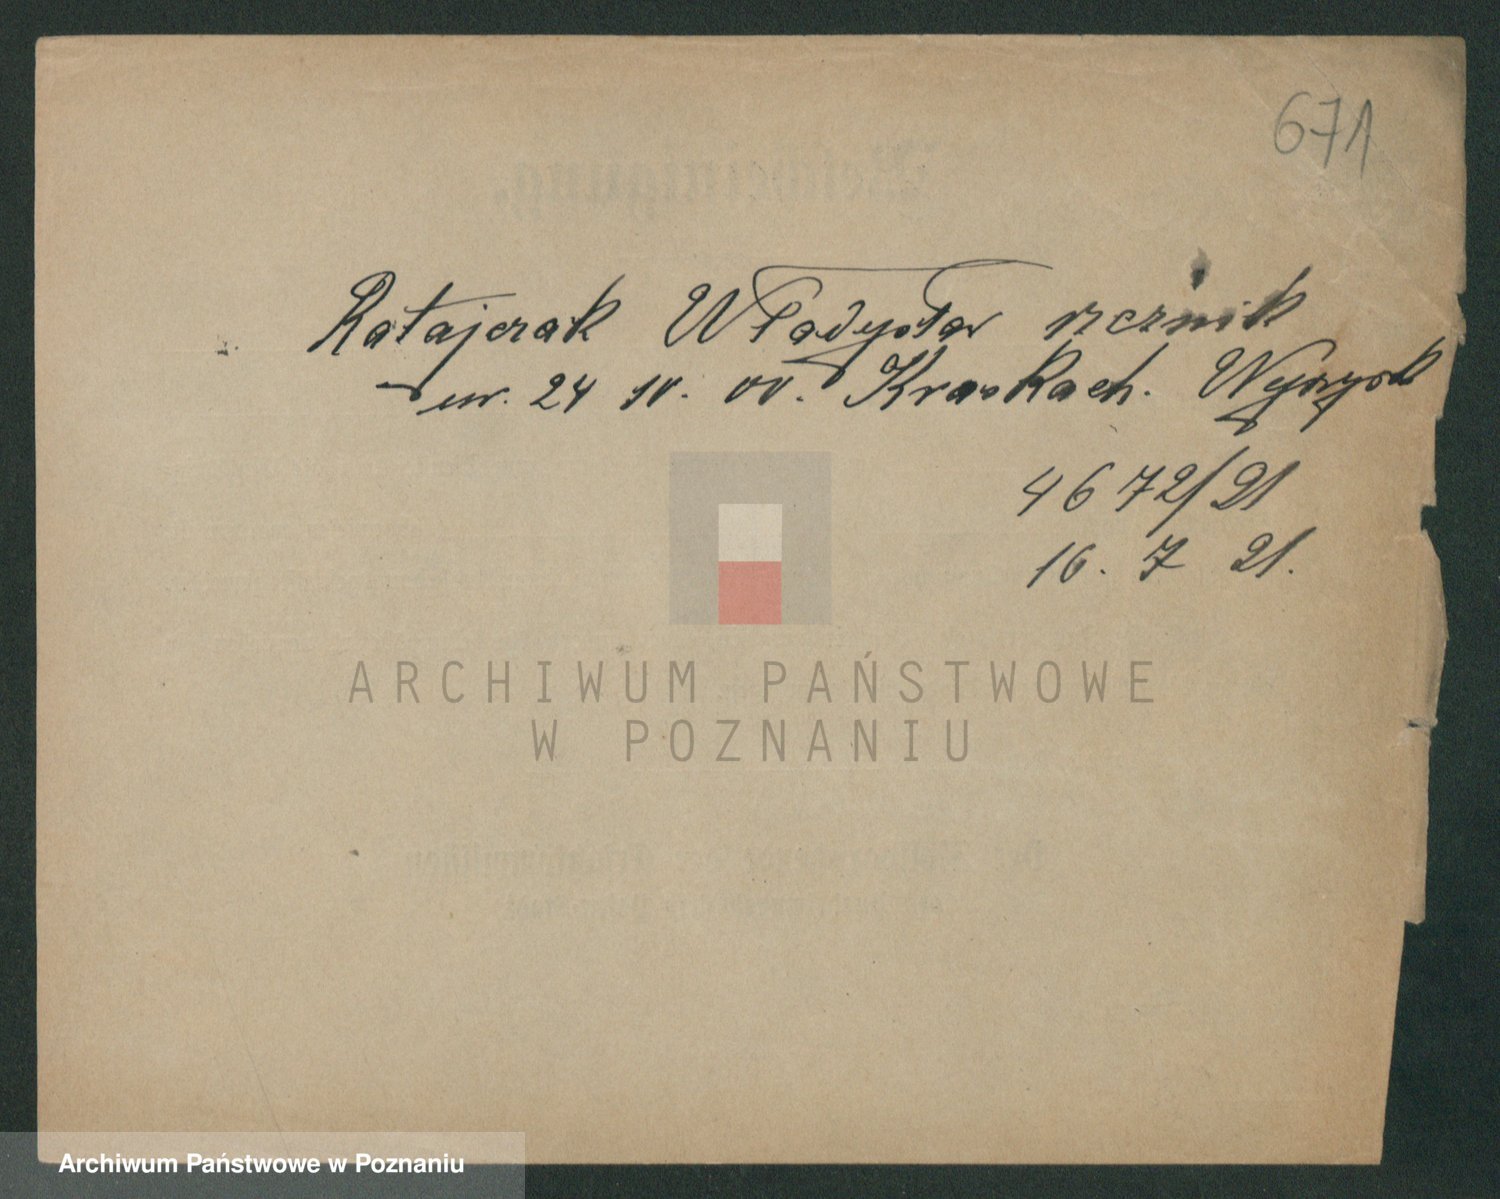 671
Ratajczak Władysław rzeźnik
ur. 24 IV. 00. Kraskach. Wyrzysk
4672/21
16. 7 21.
ARCHIWUM PAŃSTWOWE
W POZNANIU
Archiwum Państwowe w Poznaniu